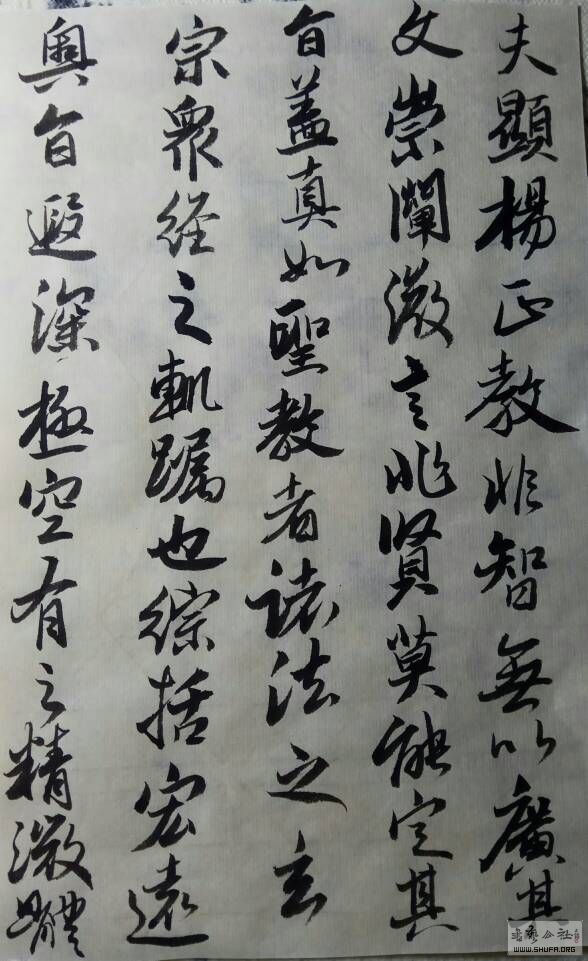 夫顯楊正教非智無以廣其
文崇闡微言非賢莫能定其
旨盖真如聖教者諸法之玄
宗眾経之軌躅也綜括宏遠
奧旨遐深極空有之精微體
书艺公社
WWW.SHUFA.ORG